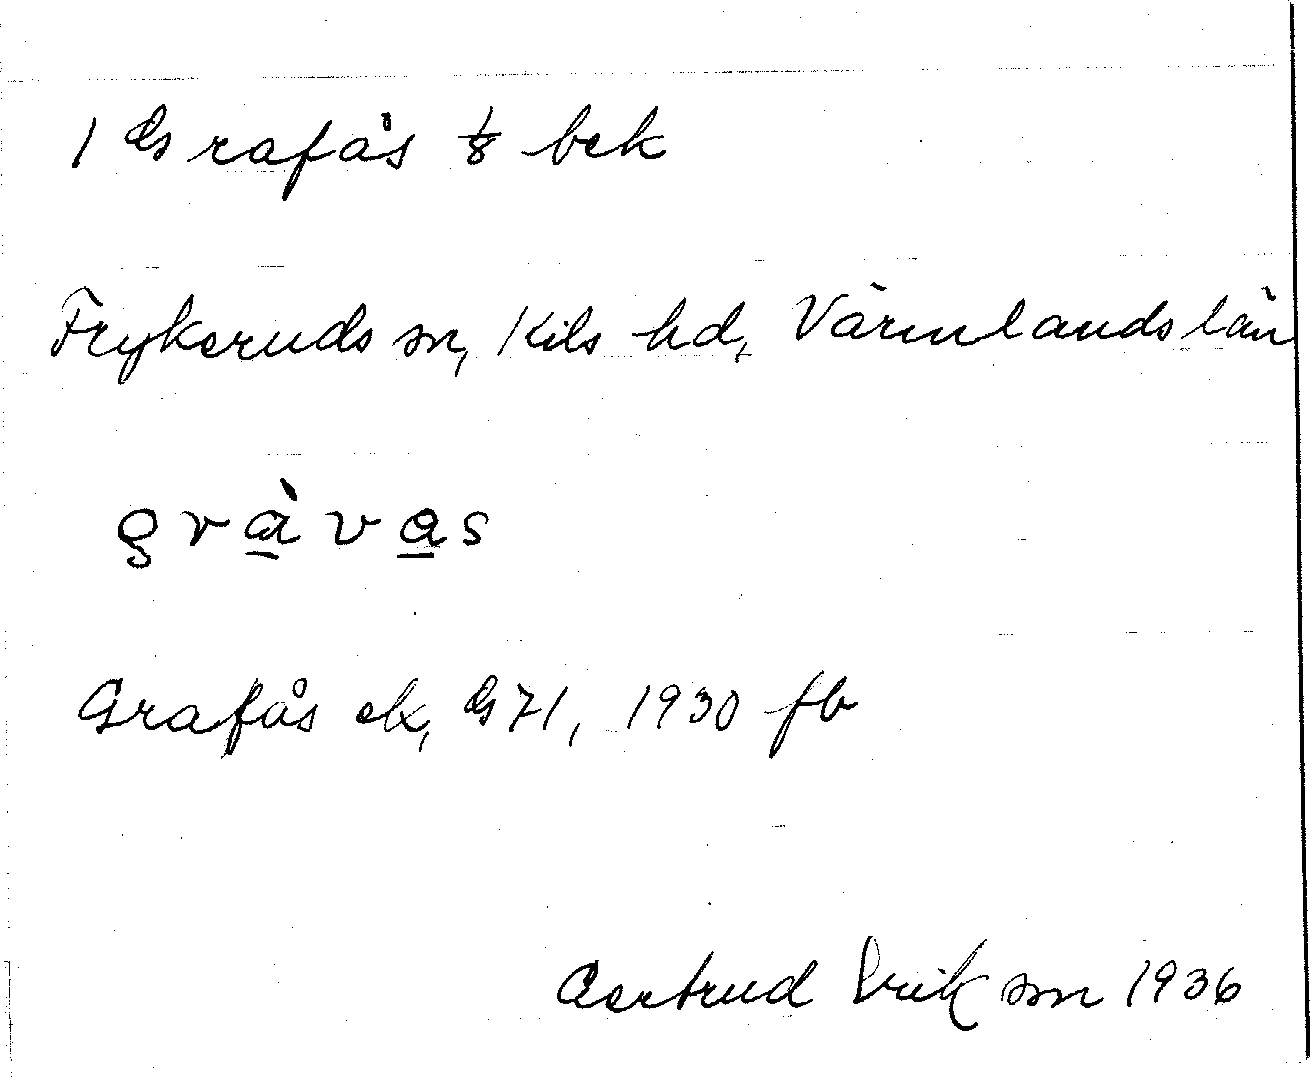 1 Grafås 1/8 bek
Frykeruds sn, Kils hd, Värmlands län
gràvas
Grafås ek, G71, 1930 fb
Gertrud Erikson 1936